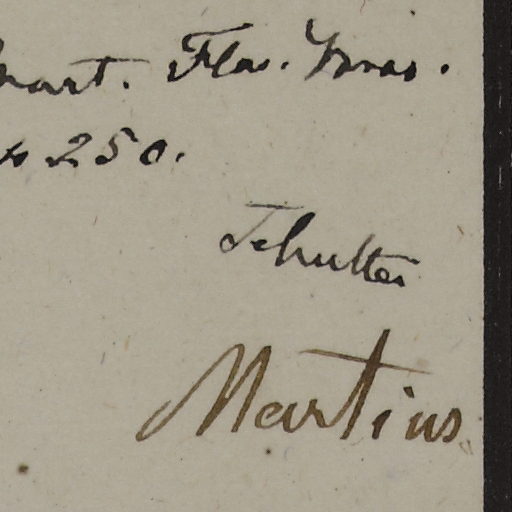 Mart. Flor. Bras.
250.
Schultes
Martius